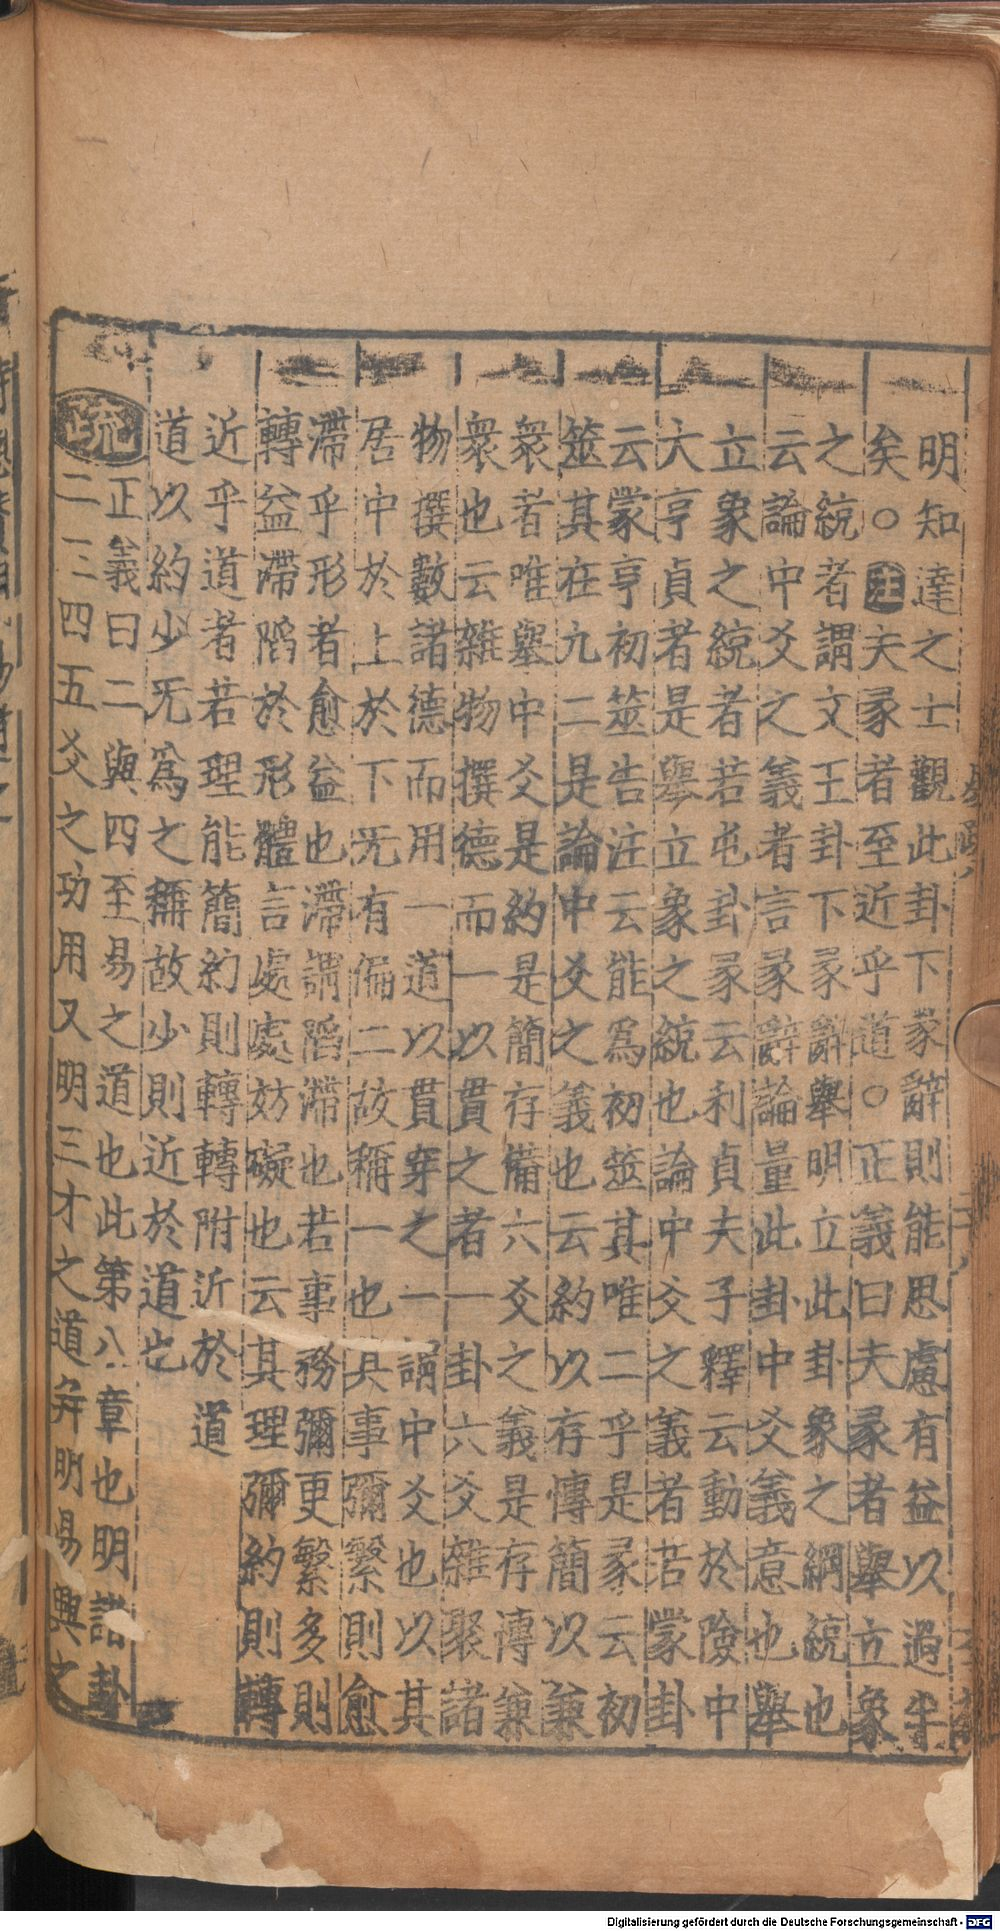 明知達之士觀此卦下彖辭則能思慮有益以過半
矣○注夫彖者至近乎道○正義曰夫彖者舉立象
之統者謂文王卦下彖辭舉明立此卦象之綱統也
云論中爻之義者言彖辭論量此卦中爻義意也舉
立象之統者若屯卦彖云利貞夫子釋云動於險中
大亨貞者是舉立象之統也論中爻之義者若蒙卦
云蒙亨初筮告注云能為初筮其唯二乎是彖云初
筮其在九二是論中爻之義也云約以存愽簡以兼
衆者唯舉中爻是約是簡存備六爻之義是存愽兼
衆也云雜物撰德而一以貫之者一卦六爻雜聚諸
物撰數諸德而用一道以貫穿之一謂中爻也以其
居中於上於下无有偏二故稱一也其事彌繁則愈
滯乎形者愈益也滯謂䧟滯也若事務彌更繁多則
轉益滯䧟於形體言處處妨礙也云其理彌約則轉
近乎道者若理能簡約則轉轉附近於道
道以約少无為之稱故少則近於道也
疏 正義曰二與四至易之道也此第八章也明諸卦
二三四五爻之功用又明三才之道并明易興之
Digitalisierung gefördert durch die Deutsche Forschungsgemeinschaft - DFG